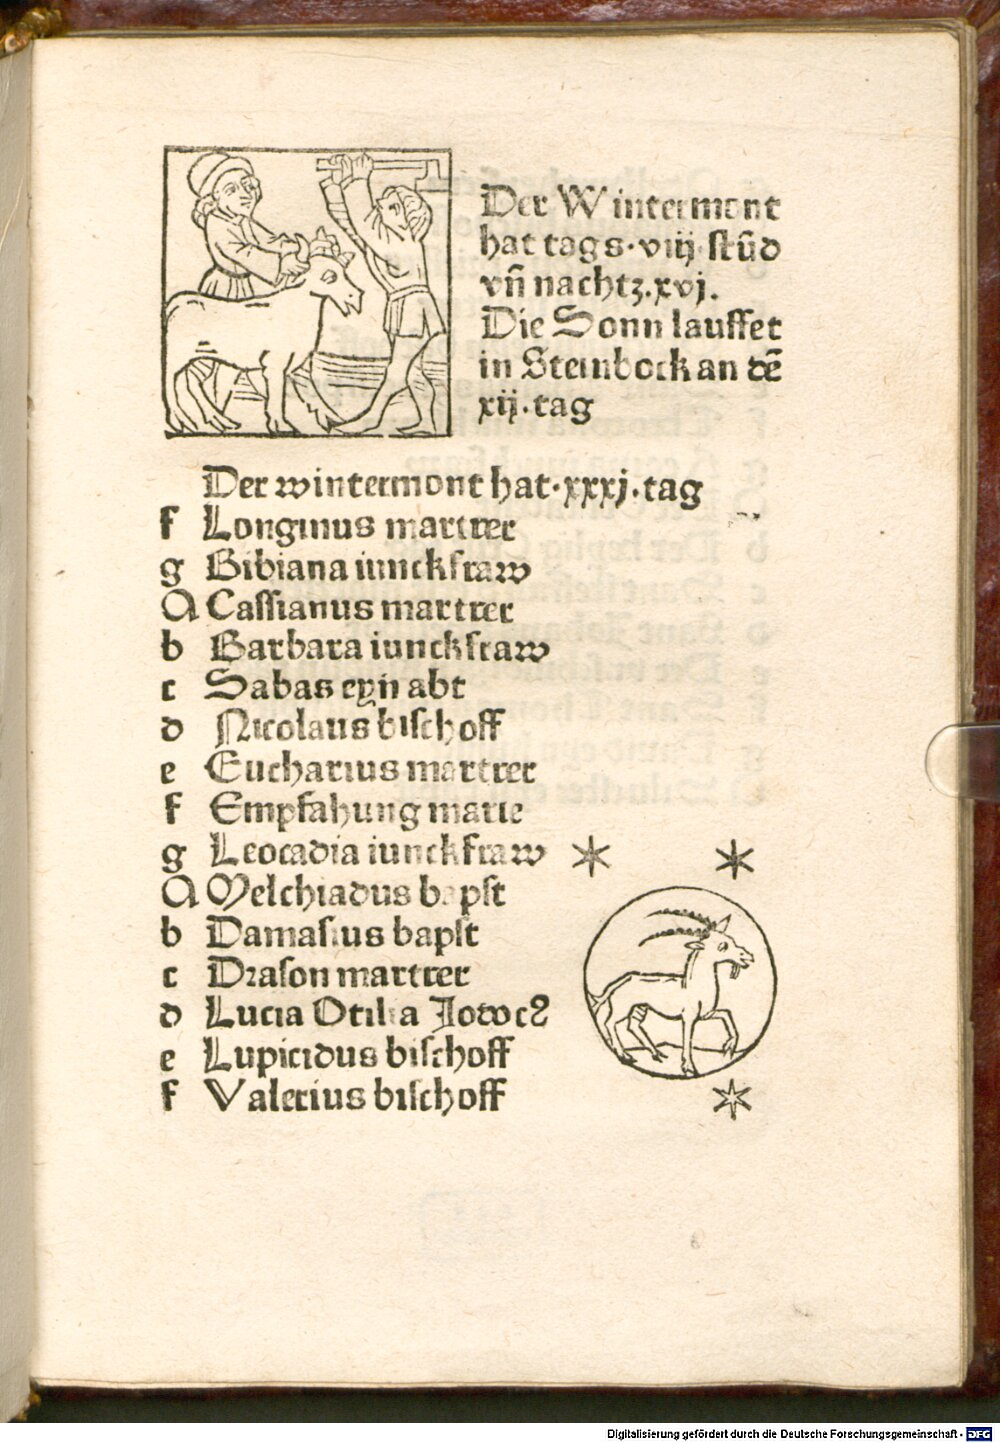 Der Wintermont
hat tags·viij stūd
vn̄ nachtz.xvj.
Die Sonn lauffet
in Steinbock an dē
xij·tag
Der wintermont hat·xxxj·tag
f Longinus martrer
g Bibiana iunckfraw
A Cassianus martrer
b Barbara iunckfraw
c Sabas eyn abt
d Nicolaus bischoff
e Eucharius martrer
f Empfahung marie
g Leocadia iunckfraw
A Melchiadus bapst
b Damasius bapst
c Drason martrer
d Lucia Otilia
e Lupicidus bischoff
f Valerius bischoff
Digitalisierung gefördert durch die Deutsche Forschungsgemeinschaft - DFG